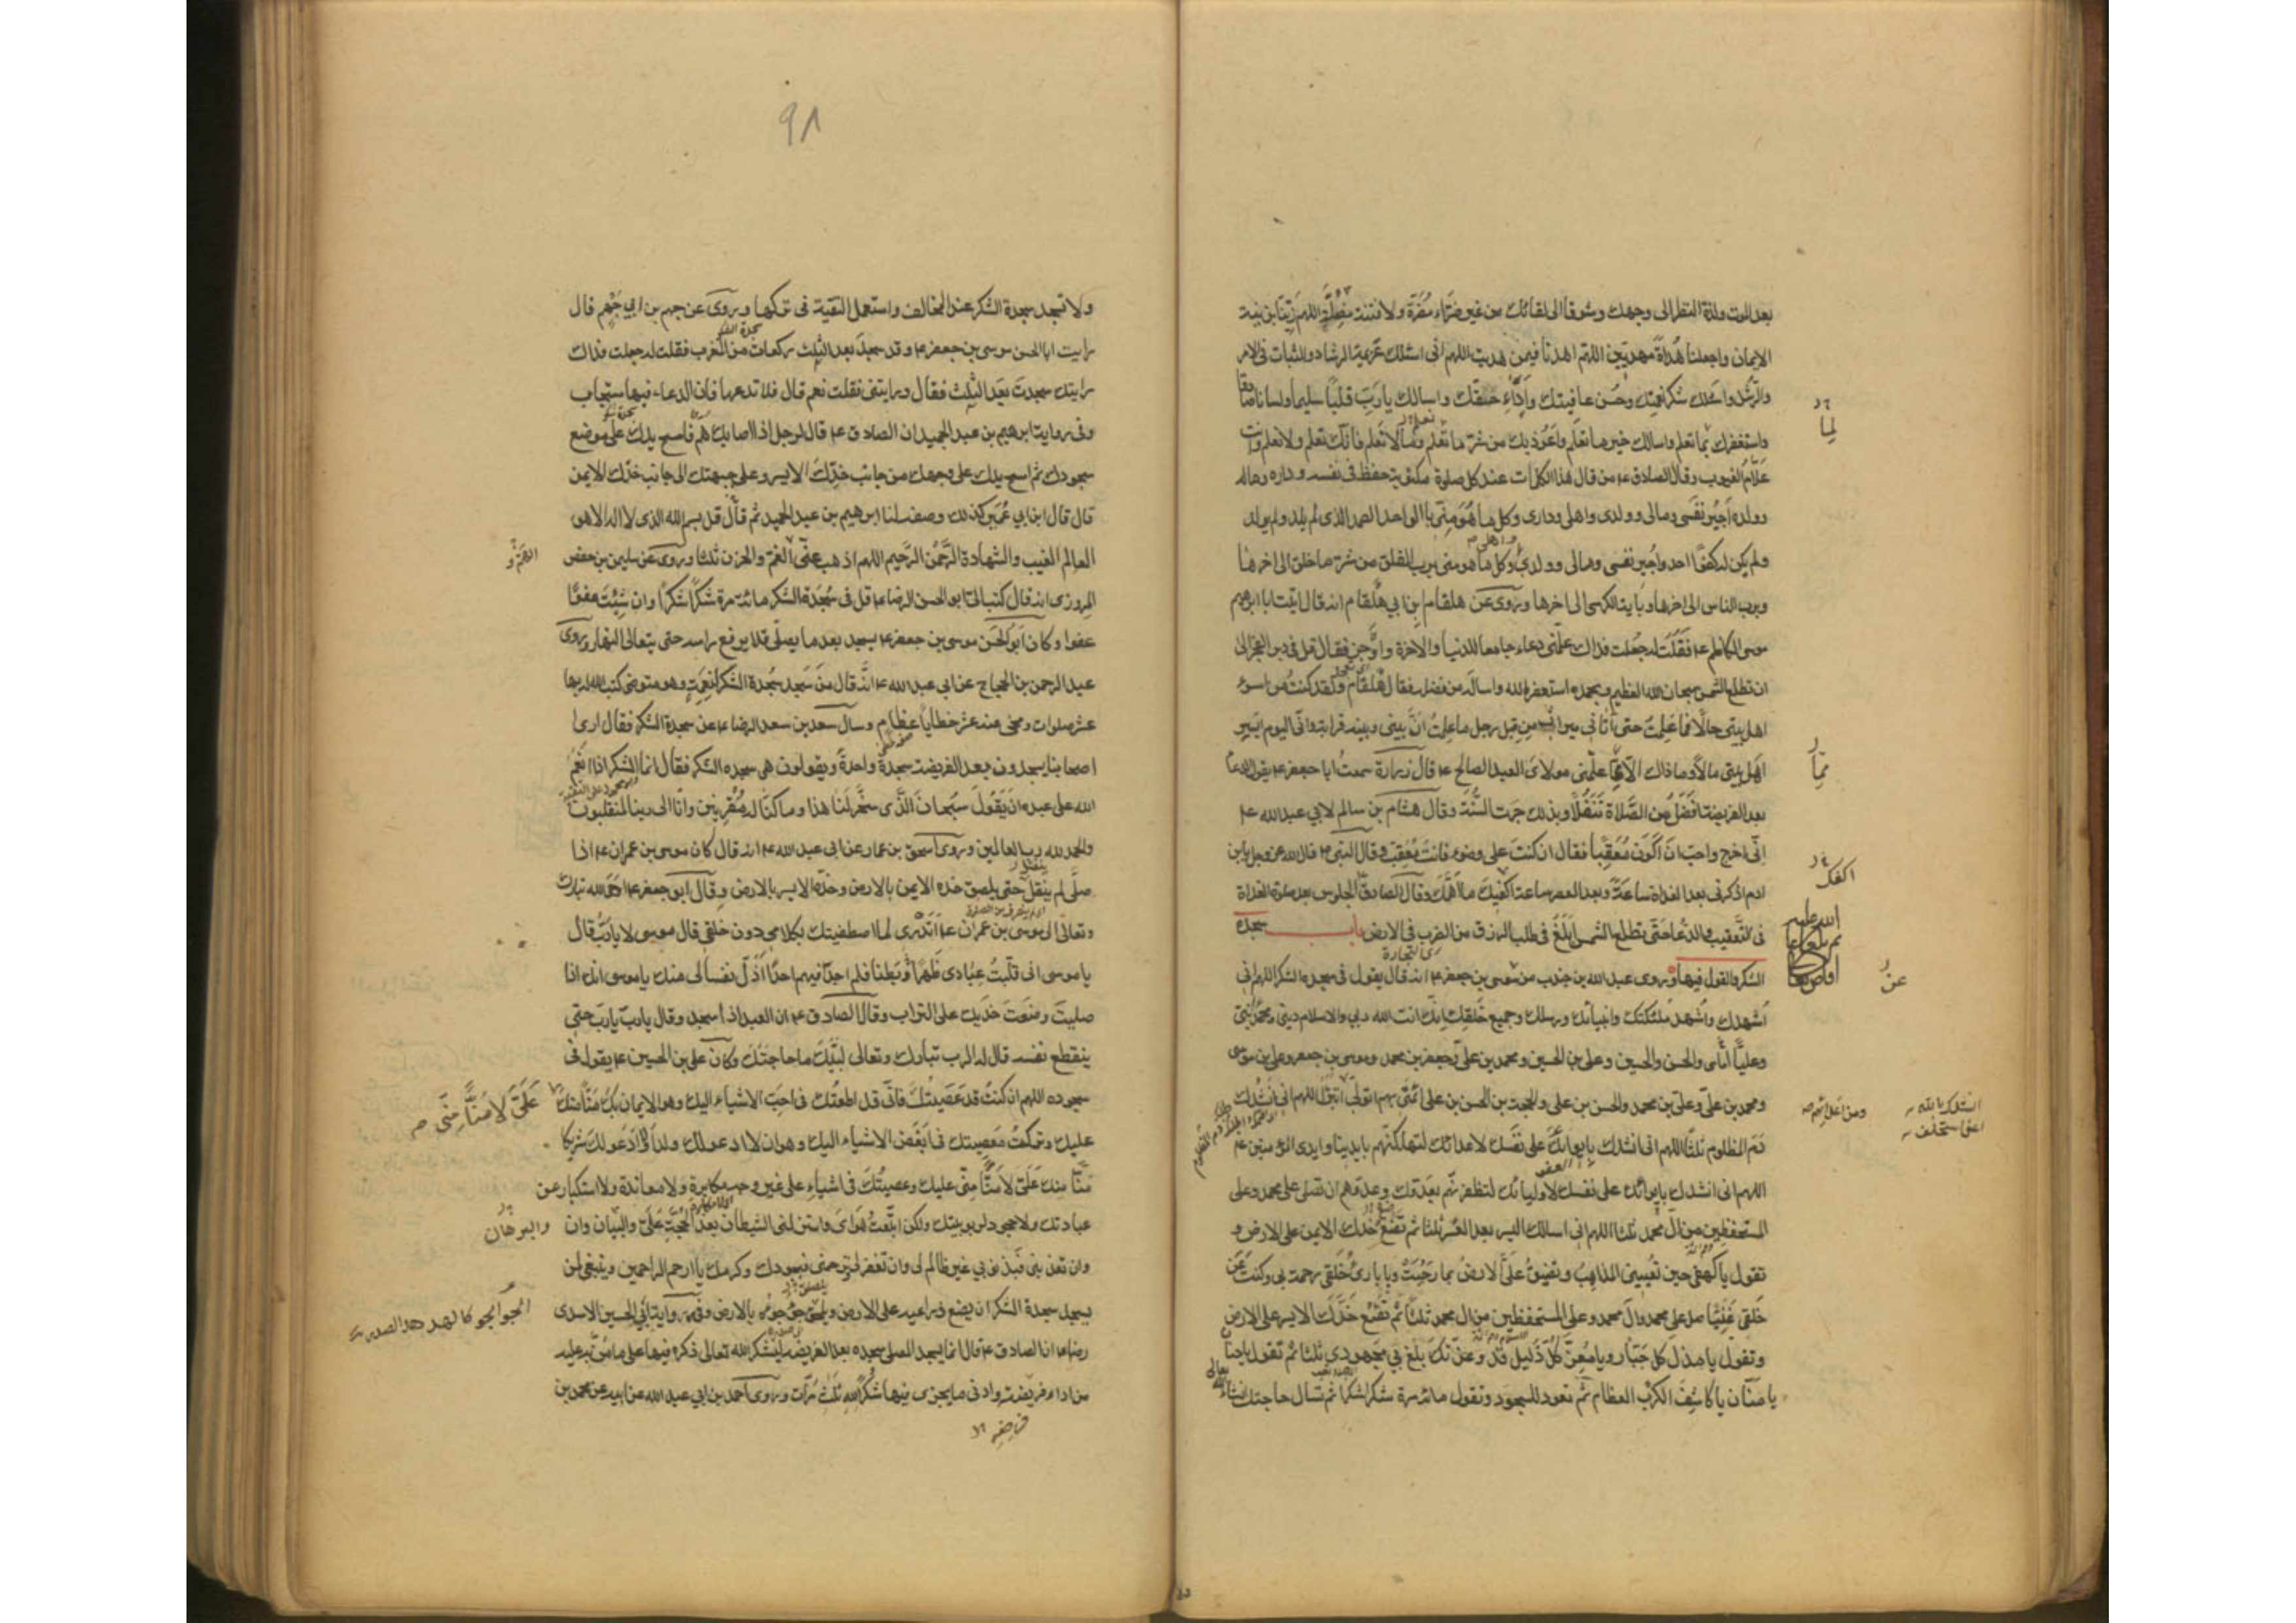 بعد الموت ولذة النظر الى وجهك وشوقا الى لقائك من غير ضراء مضرة ولا فتنة مضلة اللهم زينا بزينة
الايمان واجعلنا هداة مهديين اللهم اهدنا فيمن هديت اللهم انى اسئلك عزيمة الرشاد والثبات فى الامر
والرشد واسئلك شكر نعمتك وحسن عافيتك واداء حقك واسالك يا رب قلبا سليما ولسانا صادقا
واستغفرك لما تعلم واسالك خير ما تعلم واعوذ بك من شر ما تعلم وما لا نعلم فانك تعلم ولا نعلم وانت
علام الغيوب وقال الصادق ع من قال هذا الكلمات عند كل صلوة مكتوبة حفظ فى نفسه وداره وماله
وولده اجير نفسى ومالى وولدى واهلى ودارى وكل ما هو منى باالواحد الصمد الذى لم يلد ولم يولد
ولم يكن له كفوا احد واجير نفسى ومالى وولدى وكل ما هو منى برب الفلق من شر ما خلق الى اخرها
وبرب الناس الى اخرها وباية الكرسى الى اخرها وروى عن هلقام بن ابي هلقام انه قال اتيت ابا ابرهيم
موسى الكاظم ع فقلت له جعلت فداك علمنى دعاء جامعا للدنيا والاخرة واوجز فقال قل فى دبر الفجر الى
ان تطلع الشمس سبحان الله العظيم وبحمده استغفر الله واساله من فضله فقال هلقام ولقد كنت من اسوء
اهل بيتى حالا فما علمت حتى اتانى ميراث من قبل رجل ما علمت ان بينى وبينه قرابة وانى اليوم ايسر
اهل بيتى مالا وما ذاك الا مما علمنى مولاى العبد الصالح ع قال زرارة سمعت ابا جعفر ع يقول الدعاء
بعد الفريضة افضل من الصلاة تنفلا وبذلك جرت السنة وقال هشام بن سالم لابي عبد الله ع
انى اخرج واحب ان اكون معقبا فقال ان كنت على وضوء فانت معقب وقال النبى ص قال الله عز وجل يا بن
ادم اذكرنى بعد الغداة ساعة وبعد العصر ساعة اكفيك ما اهمك وقال الصادق الجلوس بعد صلوة الغداة
فى التعقيب والدعا حتى تطلع الشمس ابلغ فى طلب الرزق من الضرب فى الارض باب سجدة
الشكر والقول فيها وروى عبد الله بن جندب من موسى بن جعفر ع انه قال يقول فى سجدة الشكر اللهم انى
اشهدك واشهد ملئكتك وانبيائك ورسلك وجميع خلقك انك انت الله ربي والاسلام دينى ومحمد نبيى
وعليا والحسن والحسين وعلى بن الحسين ومحمد بن على وجعفر بن محمد وموسى بن جعفر وعلى بن موسى
ومحمد بن على وعلى بن محمد والحسن بن على والحجة بن الحسن بن على ائمتى بهم اتولى اتبرا اللهم انى انشدك
دم المظلوم ثلثا اللهم انى انشدك بايوائك على نفسك لاعدائك لتهلكنهم بايدينا وايدى المؤمنين
اللهم انى انشدك بايوائك على نفسك لاوليائك لتظفرنهم بعدوك وعدوهم ان تصلى على محمد وعلى
المستحفظين من ال محمد ثلثا اللهم انى اسالك اليسر بعد العسر ثلثا ثم تضع خدك الايمن على الارض و
تقول يا كهفى حين تعيينى المذاهب وتضيق على الارض بما رحبت ويا بارئ خلقى رحمة بى وكنت عن
خلقى غنيا صل على محمد وال محمد وعلى المستحفظين من ال محمد ثلثا ثم تضع خدك الايسر على الارض
وتقول يا مذل كل جبار ويا معز كل ذليل قد وعزتك بلغ بي مجهودى ثلثا ثم تقول يا حنان
يا منان يا كاشف الكرب العظام ثم تعود للسجود وتقول مائة مرة شكرا شكرا ثم تسال حاجتك انشاء الله تعالى
لما
مما
اكفك
عن
٩٨
ولا تسجد سجدة الشكر عند المخالف واستعمل التقية فى تركها وروى عن جهم بن ابي جهم قال
رايت ابا الحسن موسى بن جعفر ع وقد سجد بعد الثلث ركعات من المغرب فقلت له جعلت فداك
رايتك سجدت بعد الثلث فقال ورايتنى فقلت نعم قال فلا تدعها فان الدعاء فيها مستجاب
وفى رواية ابرهيم بن عبد الحميد ان الصادق ع قال لرجل اذا اصابك هم فامسح يدك على موضع
سجودك ثم امسح يدك على وجهك من جانب خدك الايسر وعلى جبهتك الى جانب خدك الايمن
قال قال ابن ابي عمير كذلك وصف لنا ابرهيم بن عبد الحميد ثم قال قل بسم الله الذى لا اله الا هو
العالم الغيب والشهادة الرحمن الرحيم اللهم اذهب عنى الغم والحزن ثلثا وروى عن سليمن بن حفص
المروزى انه قال كتب الى ابو الحسن الرضا ع قل فى سجدة الشكر مائة مرة شكرا شكرا وان شئت عفوا
عفوا وكان ابو الحسن موسى بن جعفر ع يسجد بعد ما يصلى فلا يرفع راسه حتى يتعالى النهار وروى
عبد الرحمن بن الحجاج عن ابى عبد الله ع انه قال من سجد سجدة الشكر لنعمة وهو متوضى كتب الله له بها
عشر صلوات ومحى عنه عشر خطايا عظام وسال سعد بن سعد الرضا ع عن سجدة الشكر فقال ارى
اصحابنا يسجدون بعد الفريضة سجدة واحدة ويقولون هى سجدة الشكر فقال انما الشكر اذا انعم
الله على عبده ان يقول سبحان الذى سخر لنا هذا وما كنا له مقرنين وانا الى ربنا لمنقلبون
والحمد لله رب العالمين وروى اسحق بن عمار عن ابى عبد الله ع انه قال كان موسى بن عمران ع اذا
صلى لم ينفتل حتى يلصق خده الايمن بالارض وخده الايسر بالارض وقال ابو جعفر ع اوحى الله تبارك
وتعالى الى موسى بن عمران ع اتدرى لما اصطفيتك بكلامى دون خلقى قال موسى لا يا رب قال
يا موسى انى قلبت عبادى ظهرا وبطنا فلم اجد فيهم احدا اذل نفسا لى منك يا موسى انك اذا
صليت وضعت خديك على التراب وقال الصادق ع ان العبد اذا سجد وقال يا رب يا رب حتى
ينقطع نفسه قال له الرب تبارك وتعالى لبيك ما حاجتك وكان على بن الحسين ع يقول فى
سجوده اللهم ان كنت قد عصيتك فانى قد اطعتك فى احب الاشياء اليك وهو الايمان بك منا منك
عليك وتركت معصيتك فى ابغض الاشياء اليك وهو ان لا ادعو لك ولدا او ادعو لك شريكا
منا منك على لا منا منى عليك وعصيتك فى اشياء على غير وجه مكابرة ولا معاندة ولا استكبار عن
عبادتك ولا جحود لربوبيتك ولكن اتبعت هواى واستزلنى الشيطان بعد الحجة على والبيان وان
وان تعذبنى فبذنوبي غير ظالم لى وان تغفر لى وترحمنى فبجودك وكرمك يا ارحم الراحمين وينبغى لمن
يسجد سجدة الشكر ان يضع ذراعيه على الارض ويلصق جؤجؤه بالارض وفى رواية ابي الحسين الاسدى
رض ان الصادق ع قال انما يسجد المصلى سجدة بعد الفريضة ليشكر الله تعالى ذكره فيها على ما من به عليه
من اداء فريضته وادنى ما يجزى فيها شكرا لله ثلث مرات وروى احمد بن ابى عبد الله عن ابيه عن محمد بن
الهم و
على لا منا منى
والبرهان